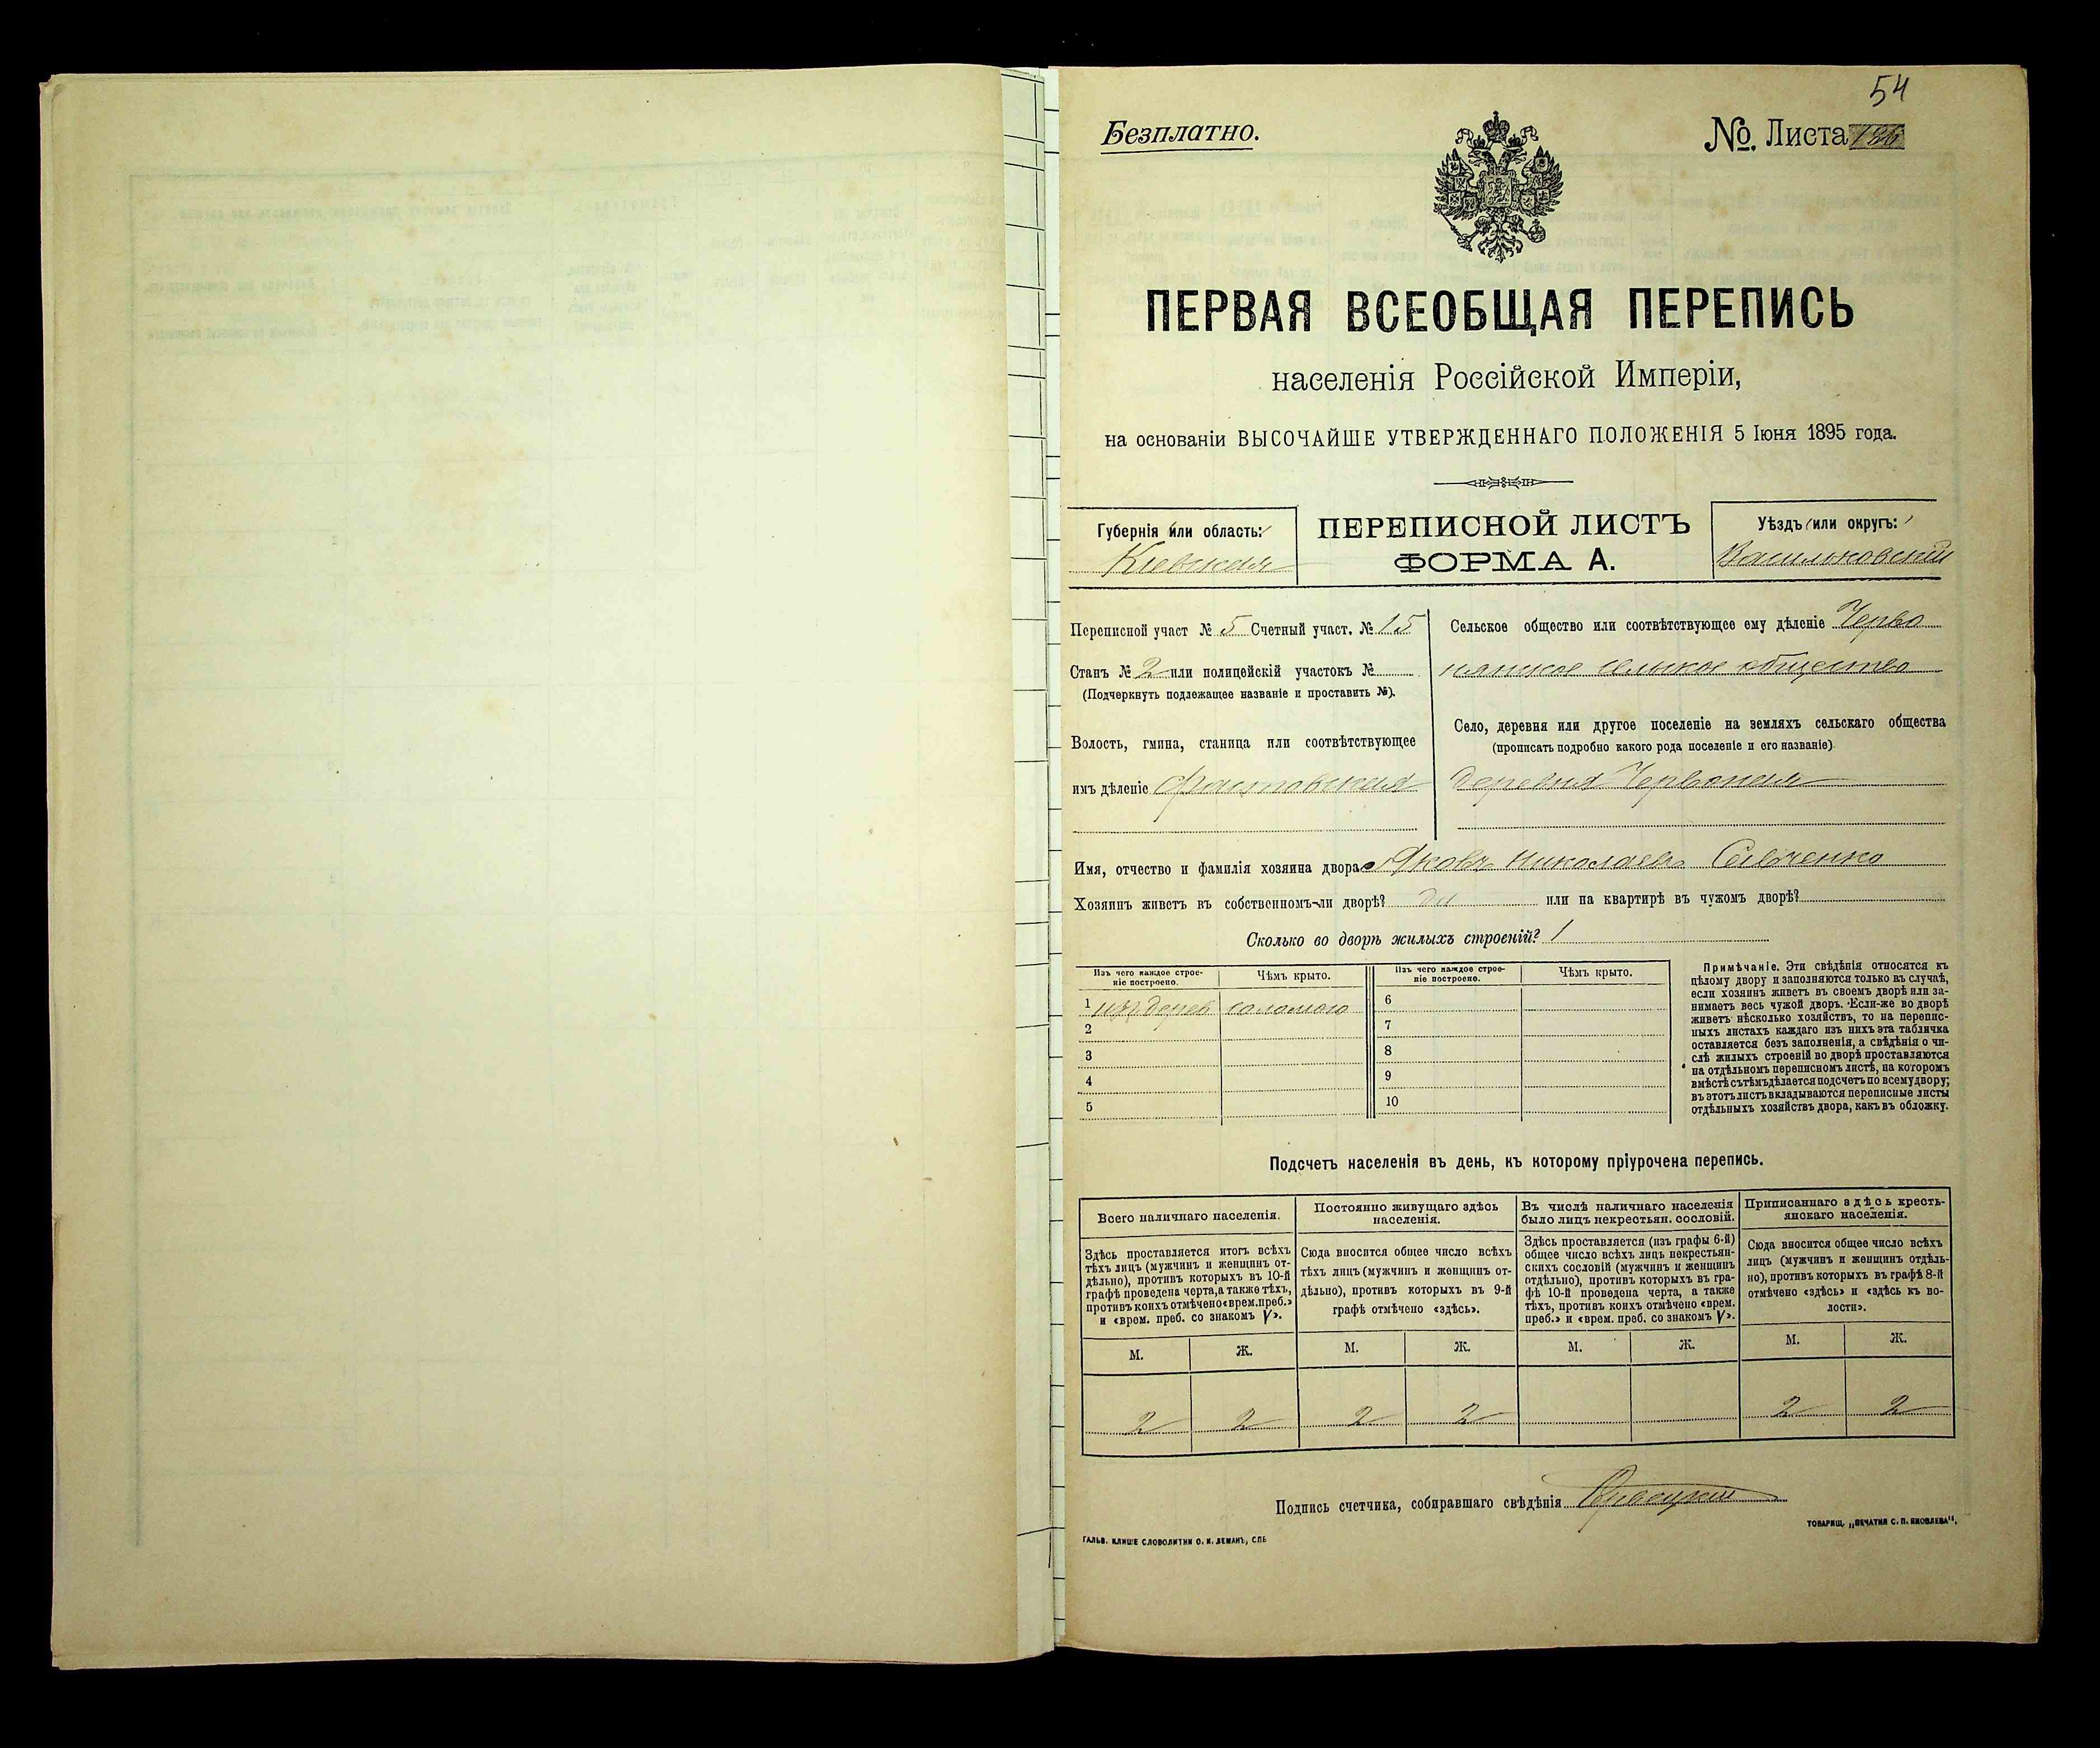 54
Безплатно.
№. Листа 186
ПЕРВАЯ ВСЕОБЩАЯ ПЕРЕПИСЬ
населенія Россійской Имперіи,
на основаніи ВЫСОЧАЙШЕ УТВЕРЖДЕННАГО ПОЛОЖЕНІЯ 5 Іюня 1895 года.
Губернія или область:
Кіевская
ПЕРЕПИСНОЙ ЛИСТЪ
ФОРМА А.
Уѣздъ или округъ:
Васильковскій
Переписной участ № 5 Счетный участ. № 15
Станъ № 2 или полицейскій участокъ №
(Подчеркнуть подлежащее названіе и проставить №).
Волость, гмина, станица или соотвѣтствующее
имъ дѣленіе Фастовская
Сельское общество или соотвѣтствующее ему дѣленіе Черво
нянское сельское общество
Село, деревня или другое поселеніе на земляхъ сельскаго общества
(прописать подробно какого рода поселеніе и его названіе).
деревня Червоная
Имя, отчество и фамилія хозяина двора Яковъ Николаевъ Савченко
Хозяинъ живетъ въ собственномъ-ли дворѣ? да или на квартирѣ въ чужомъ дворѣ?
Сколько во дворѣ жилыхъ строеній? 1
Изъ чего каждое строе-
ніе построено.
Чѣмъ крыто.
Изъ чего каждое строе-
ніе построено.
Чѣмъ крыто.
1 изъ дерев соломою
2
3
4
5
6
7
8
9
10
Примѣчаніе. Эти свѣдѣнія относятся къ
цѣлому двору и заполняются только въ случаѣ,
если хозяинъ живетъ въ своемъ дворѣ или за-
нимаетъ весь чужой дворъ. Если-же во дворѣ
живетъ нѣсколько хозяйствъ, то на перепис-
ныхъ листахъ каждаго изъ нихъ эта табличка
оставляется безъ заполненія, а свѣдѣнія о чи-
слѣ жилыхъ строеній во дворѣ проставляются
на отдѣльномъ переписномъ листѣ, на которомъ
вмѣстѣ съ тѣмъ дѣлается подсчетъ по всему двору;
въ этотъ листъ вкладываются переписные листы
отдѣльныхъ хозяйствъ двора, какъ въ обложку.
Подсчетъ населенія въ день, къ которому пріурочена перепись.
Всего наличнаго населенія.
Здѣсь проставляется итогъ всѣхъ
тѣхъ лицъ (мужчинъ и женщинъ от-
дѣльно), противъ которыхъ въ 10-й
графѣ проведена черта, а также тѣхъ,
противъ коихъ отмѣчено «врем. преб.»
и «врем. преб. со знакомъ V».
Постоянно живущаго здѣсь
населенія.
Сюда вносится общее число всѣхъ
тѣхъ лицъ (мужчинъ и женщинъ от-
дѣльно), противъ которыхъ въ 9-й
графѣ отмѣчено «здѣсь».
Въ числѣ наличнаго населенія
было лицъ некрестьян. сословій.
Здѣсь проставляется (изъ графы 6-й)
общее число всѣхъ лицъ некрестьян-
скихъ сословій (мужчинъ и женщинъ
отдѣльно), противъ которыхъ въ гра-
фѣ 10-й проведена черта, а также
тѣхъ, противъ коихъ отмѣчено «врем.
преб.» и «врем. преб. со знакомъ V».
Приписаннаго здѣсь кресть-
янскаго населенія.
Сюда вносится общее число всѣхъ
лицъ (мужчинъ и женщинъ отдѣль-
но), противъ которыхъ въ графѣ 8-й
отмѣчено «здѣсь» и «здѣсь къ во-
лости».
М. Ж. М. Ж. М. Ж. М. Ж.
2 2 2 2 2 2
Подпись счетчика, собиравшаго свѣдѣнія
ГАЛЬВ. КЛИШЕ СЛОВОЛИТНИ О. И. ЛЕМАНЪ, СПБ
ТОВАРИЩ. „ПЕЧАТНЯ С. П. ЯКОВЛЕВА".